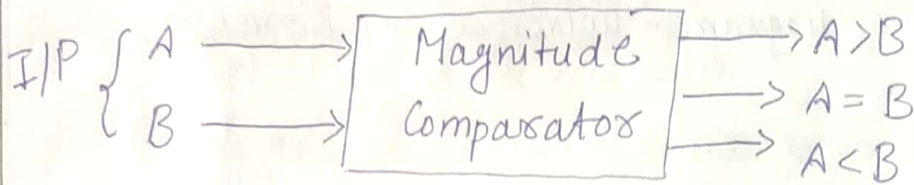 I/P { A
B
Magnitude
Comparator
A>B
A = B
A<B